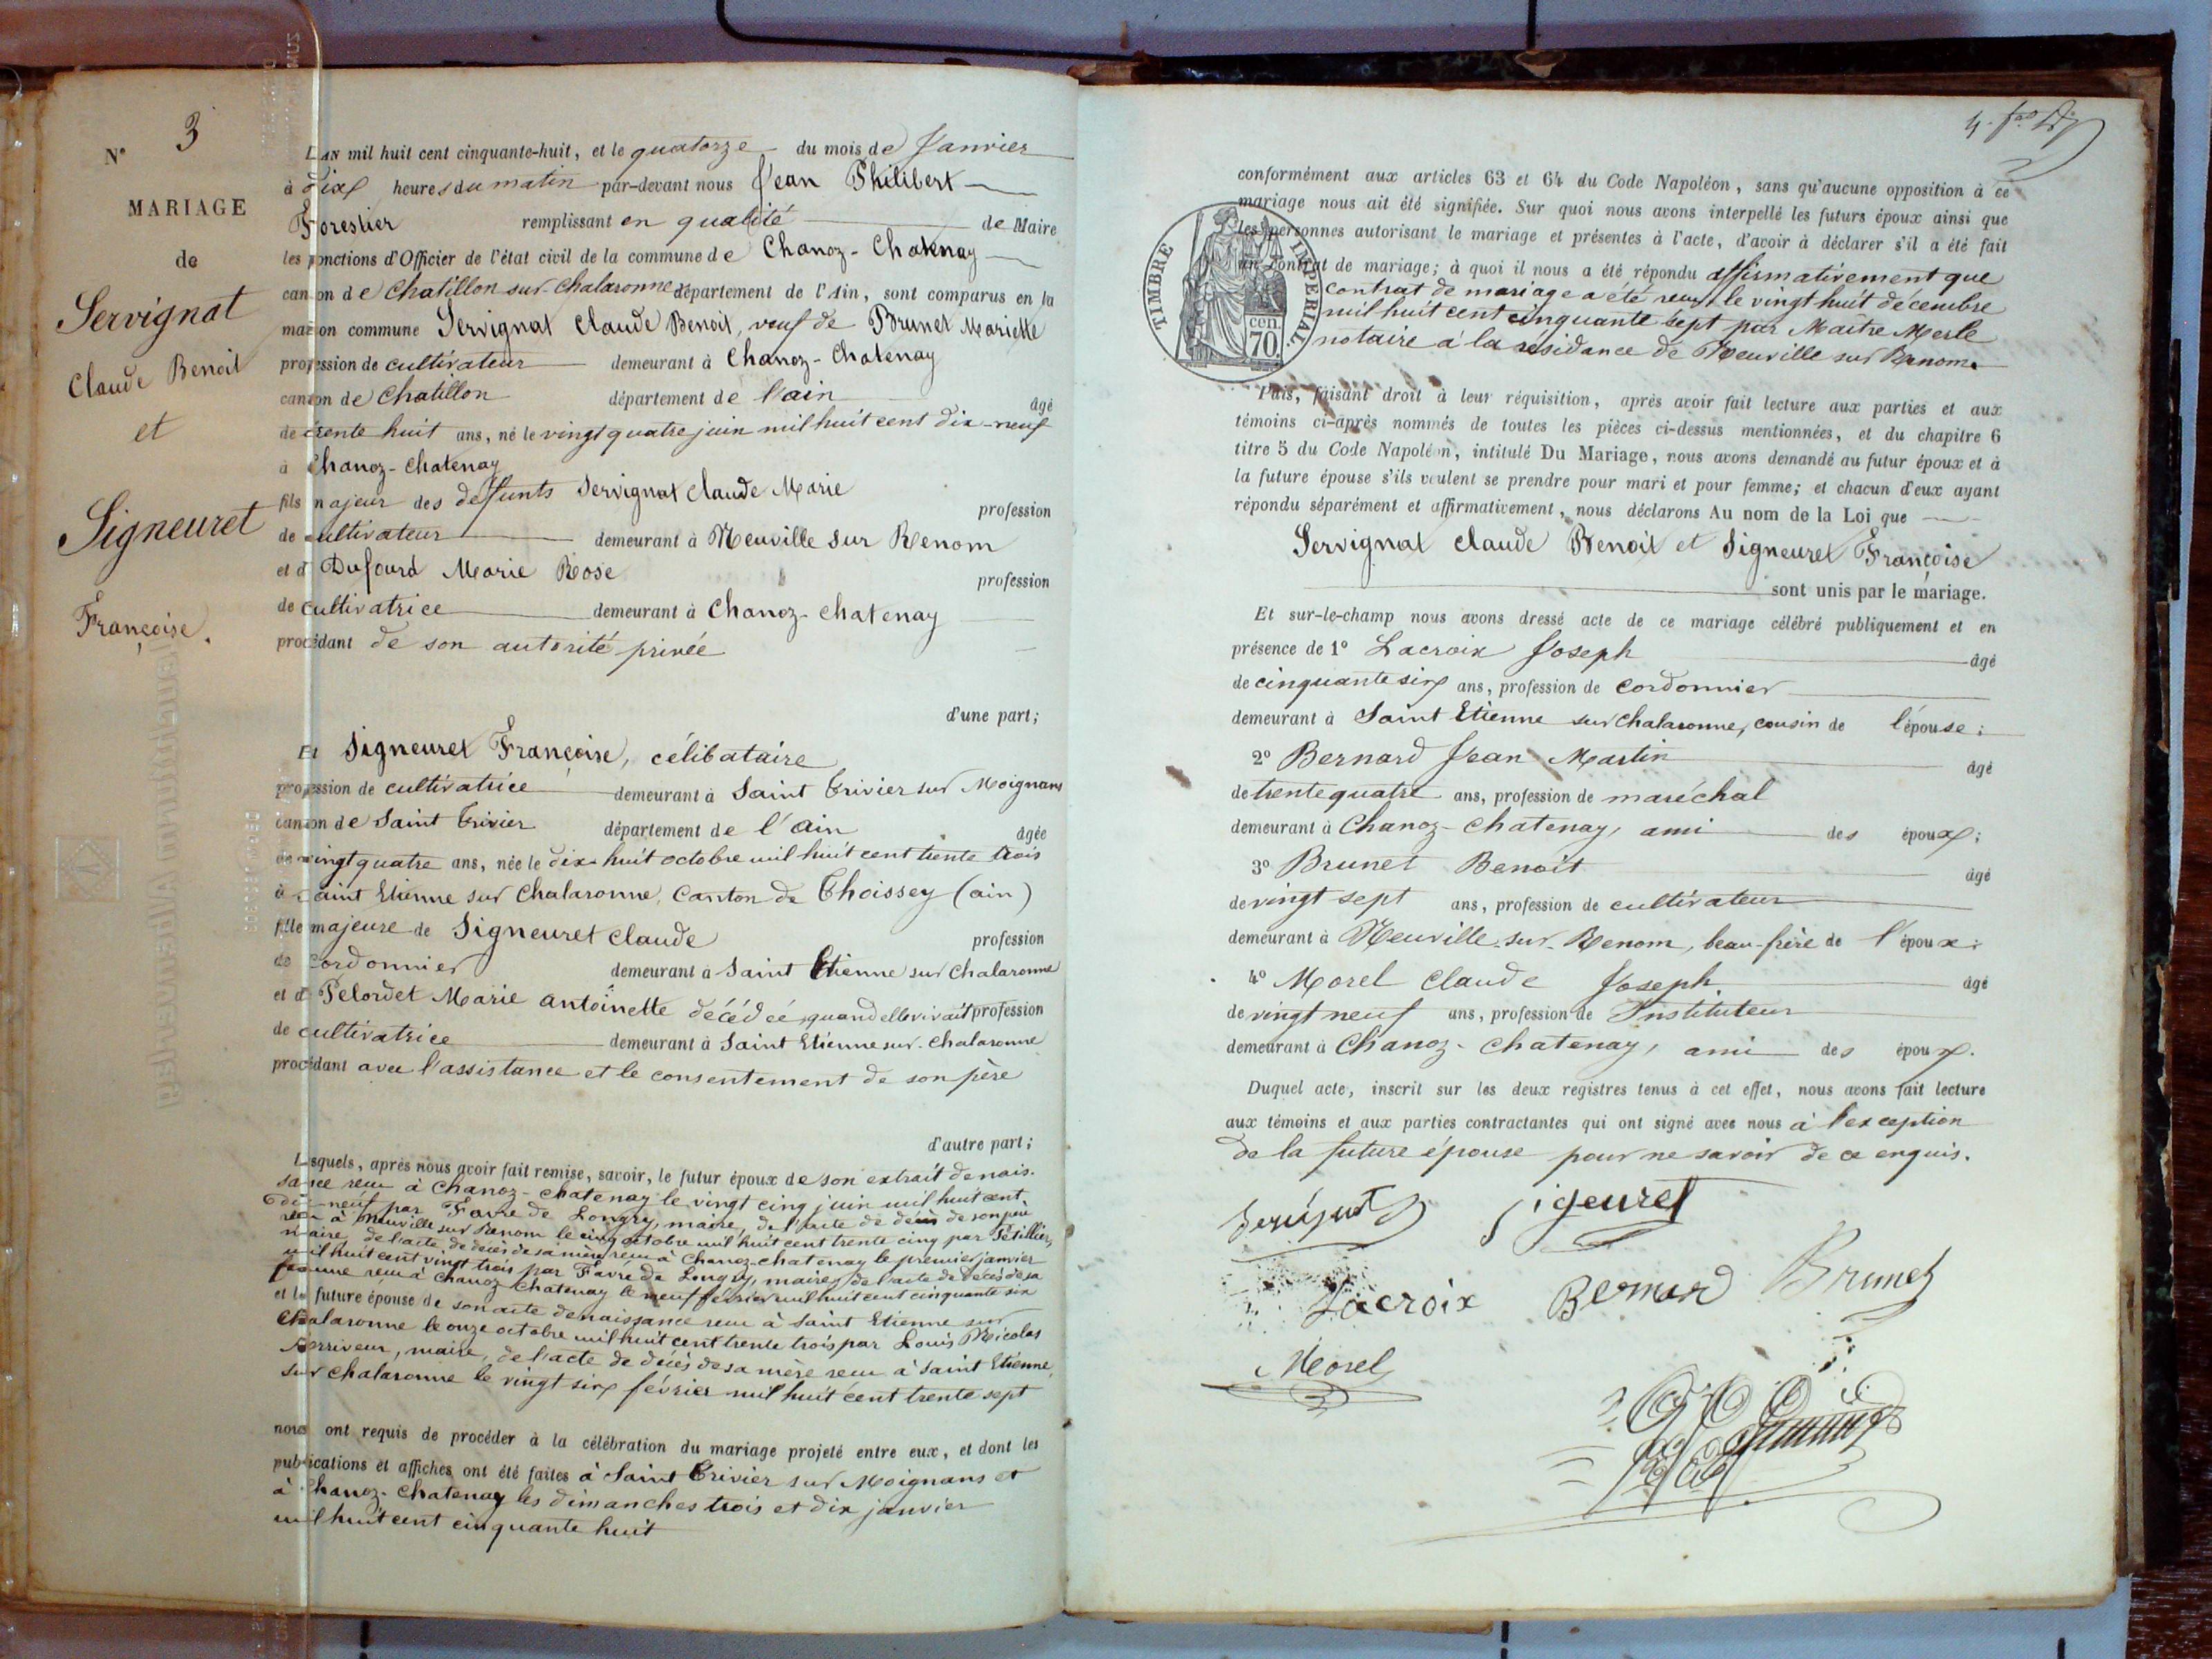 N° 3
MARIAGE
de
Servignat
Claude Benoit
et
Signeuret
Françoise.
L'AN mil huit cent cinquante-huit, et le quatorze du mois de Janvier
à dix heures du matin par-devant nous Jean Philibert
Forestier remplissant en qualité de Maire
les fonctions d'Officier de l'état civil de la commune de Chanoz-Chatenay
canton de Chatillon sur Chalaronne département de l'Ain, sont comparus en la
maison commune Servignat Claude Benoit, veuf de Brunet Mariette
profession de cultivateur demeurant à Chanoz-Chatenay
canton de Chatillon département de l'ain âgé
de trente huit ans, né le vingt quatre juin mil huit cent dix-neuf
à Chanoz-Chatenay
fils majeur des deffunts Servignat Claude Marie profession
de cultivateur demeurant à Neuville sur Renom
et d Dufourd Marie Rose profession
de cultivatrice demeurant à Chanoz-Chatenay
procédant de son autorité privée
d'une part;
Et Signeuret Françoise, célibataire
profession de cultivatrice demeurant à Saint Trivier sur Moignans
canton de Saint Trivier département de l'ain âgée
de vingt quatre ans, née le dix-huit octobre mil huit cent trente trois
à Saint Etienne sur Chalaronne, Canton de Thoissey (ain)
fille majeure de Signeuret Claude profession
de cordonnier demeurant à Saint Etienne sur Chalaronne
et d Pelordet Marie antoinette décédée, quand elle vivait profession
de cultivatrice demeurant à Saint Etienne sur Chalaronne
procédant avec l'assistance et le consentement de son père
d'autre part;
Lesquels, après nous avoir fait remise, savoir, le futur époux de son extrait de nais-
sance reçu à Chanoz-Chatenay le vingt cinq juin mil huit cent
dix-neuf par Favre de Longry, maire, de l'acte de décès de son père
reçu à Neuville sur Renom le cinq octobre mil huit cent trente cinq par Petillier,
maire, de l'acte de décès de sa mère reçu à Chanoz-chatenay le premier janvier
mil huit cent vingt trois par Favre de Longry, maire, de l'acte de décès de sa
femme reçu à Chanoz Chatenay le neuf février mil huit cent cinquante six
et la future épouse de son acte de naissance reçu à Saint Etienne sur
Chalaronne le onze octobre mil huit cent trente trois par Louis Nicolas
maire, de l'acte de décès de sa mère reçu à Saint Etienne
sur Chalaronne le vingt six février mil huit cent trente sept
nous ont requis de procéder à la célébration du mariage projeté entre eux, et dont les
publications et affiches ont été faites à Saint Trivier sur Moignans et
à Chanoz-Chatenay les dimanches trois et dix janvier
mil huit cent cinquante huit
conformément aux articles 63 et 64 du Code Napoléon, sans qu'aucune opposition à ce
mariage nous ait été signifiée. Sur quoi nous avons interpellé les futurs époux ainsi que
les personnes autorisant le mariage et présentes à l'acte, d'avoir à déclarer s'il a été fait
un contrat de mariage; à quoi il nous a été répondu affirmativement que
contrat de mariage a été reçu le vingt huit décembre
mil huit cent cinquante sept par Maître Merle
notaire à la residance de Neuville sur Renom.
TIMBRE IMPÉRIAL.
cen.
70
Puis, faisant droit à leur réquisition, après avoir fait lecture aux parties et aux
témoins ci-après nommés de toutes les pièces ci-dessus mentionnées, et du chapitre 6
titre 5 du Code Napoléon, intitulé Du Mariage, nous avons demandé au futur époux et à
la future épouse s'ils veulent se prendre pour mari et pour femme; et chacun d'eux ayant
répondu séparément et affirmativement, nous déclarons Au nom de la Loi que
Servignat Claude Benoit et Signeuret Françoise
sont unis par le mariage.
Et sur-le-champ nous avons dressé acte de ce mariage célébré publiquement et en
présence de 1° Lacroix Joseph âgé
de cinquante six ans, profession de cordonnier
demeurant à Saint Etienne sur Chalaronne, cousin de l'épouse;
2° Bernard Jean Martin âgé
de trente quatre ans, profession de maréchal
demeurant à Chanoz-Chatenay, ami des époux;
3° Brunet Benoît âgé
de vingt sept ans, profession de cultivateur
demeurant à Neuville-sur-Renom, beau-frère de l'époux;
4° Morel Claude Joseph âgé
de vingt neuf ans, profession de Instituteur
demeurant à Chanoz-Chatenay, ami des époux.
Duquel acte, inscrit sur les deux registres tenus à cet effet, nous avons fait lecture
aux témoins et aux parties contractantes qui ont signé avec nous à l'exception
de la future épouse pour ne savoir de ce enquis.
Servignat Sigeuret
Lacroix Bernard Brunet
Morel